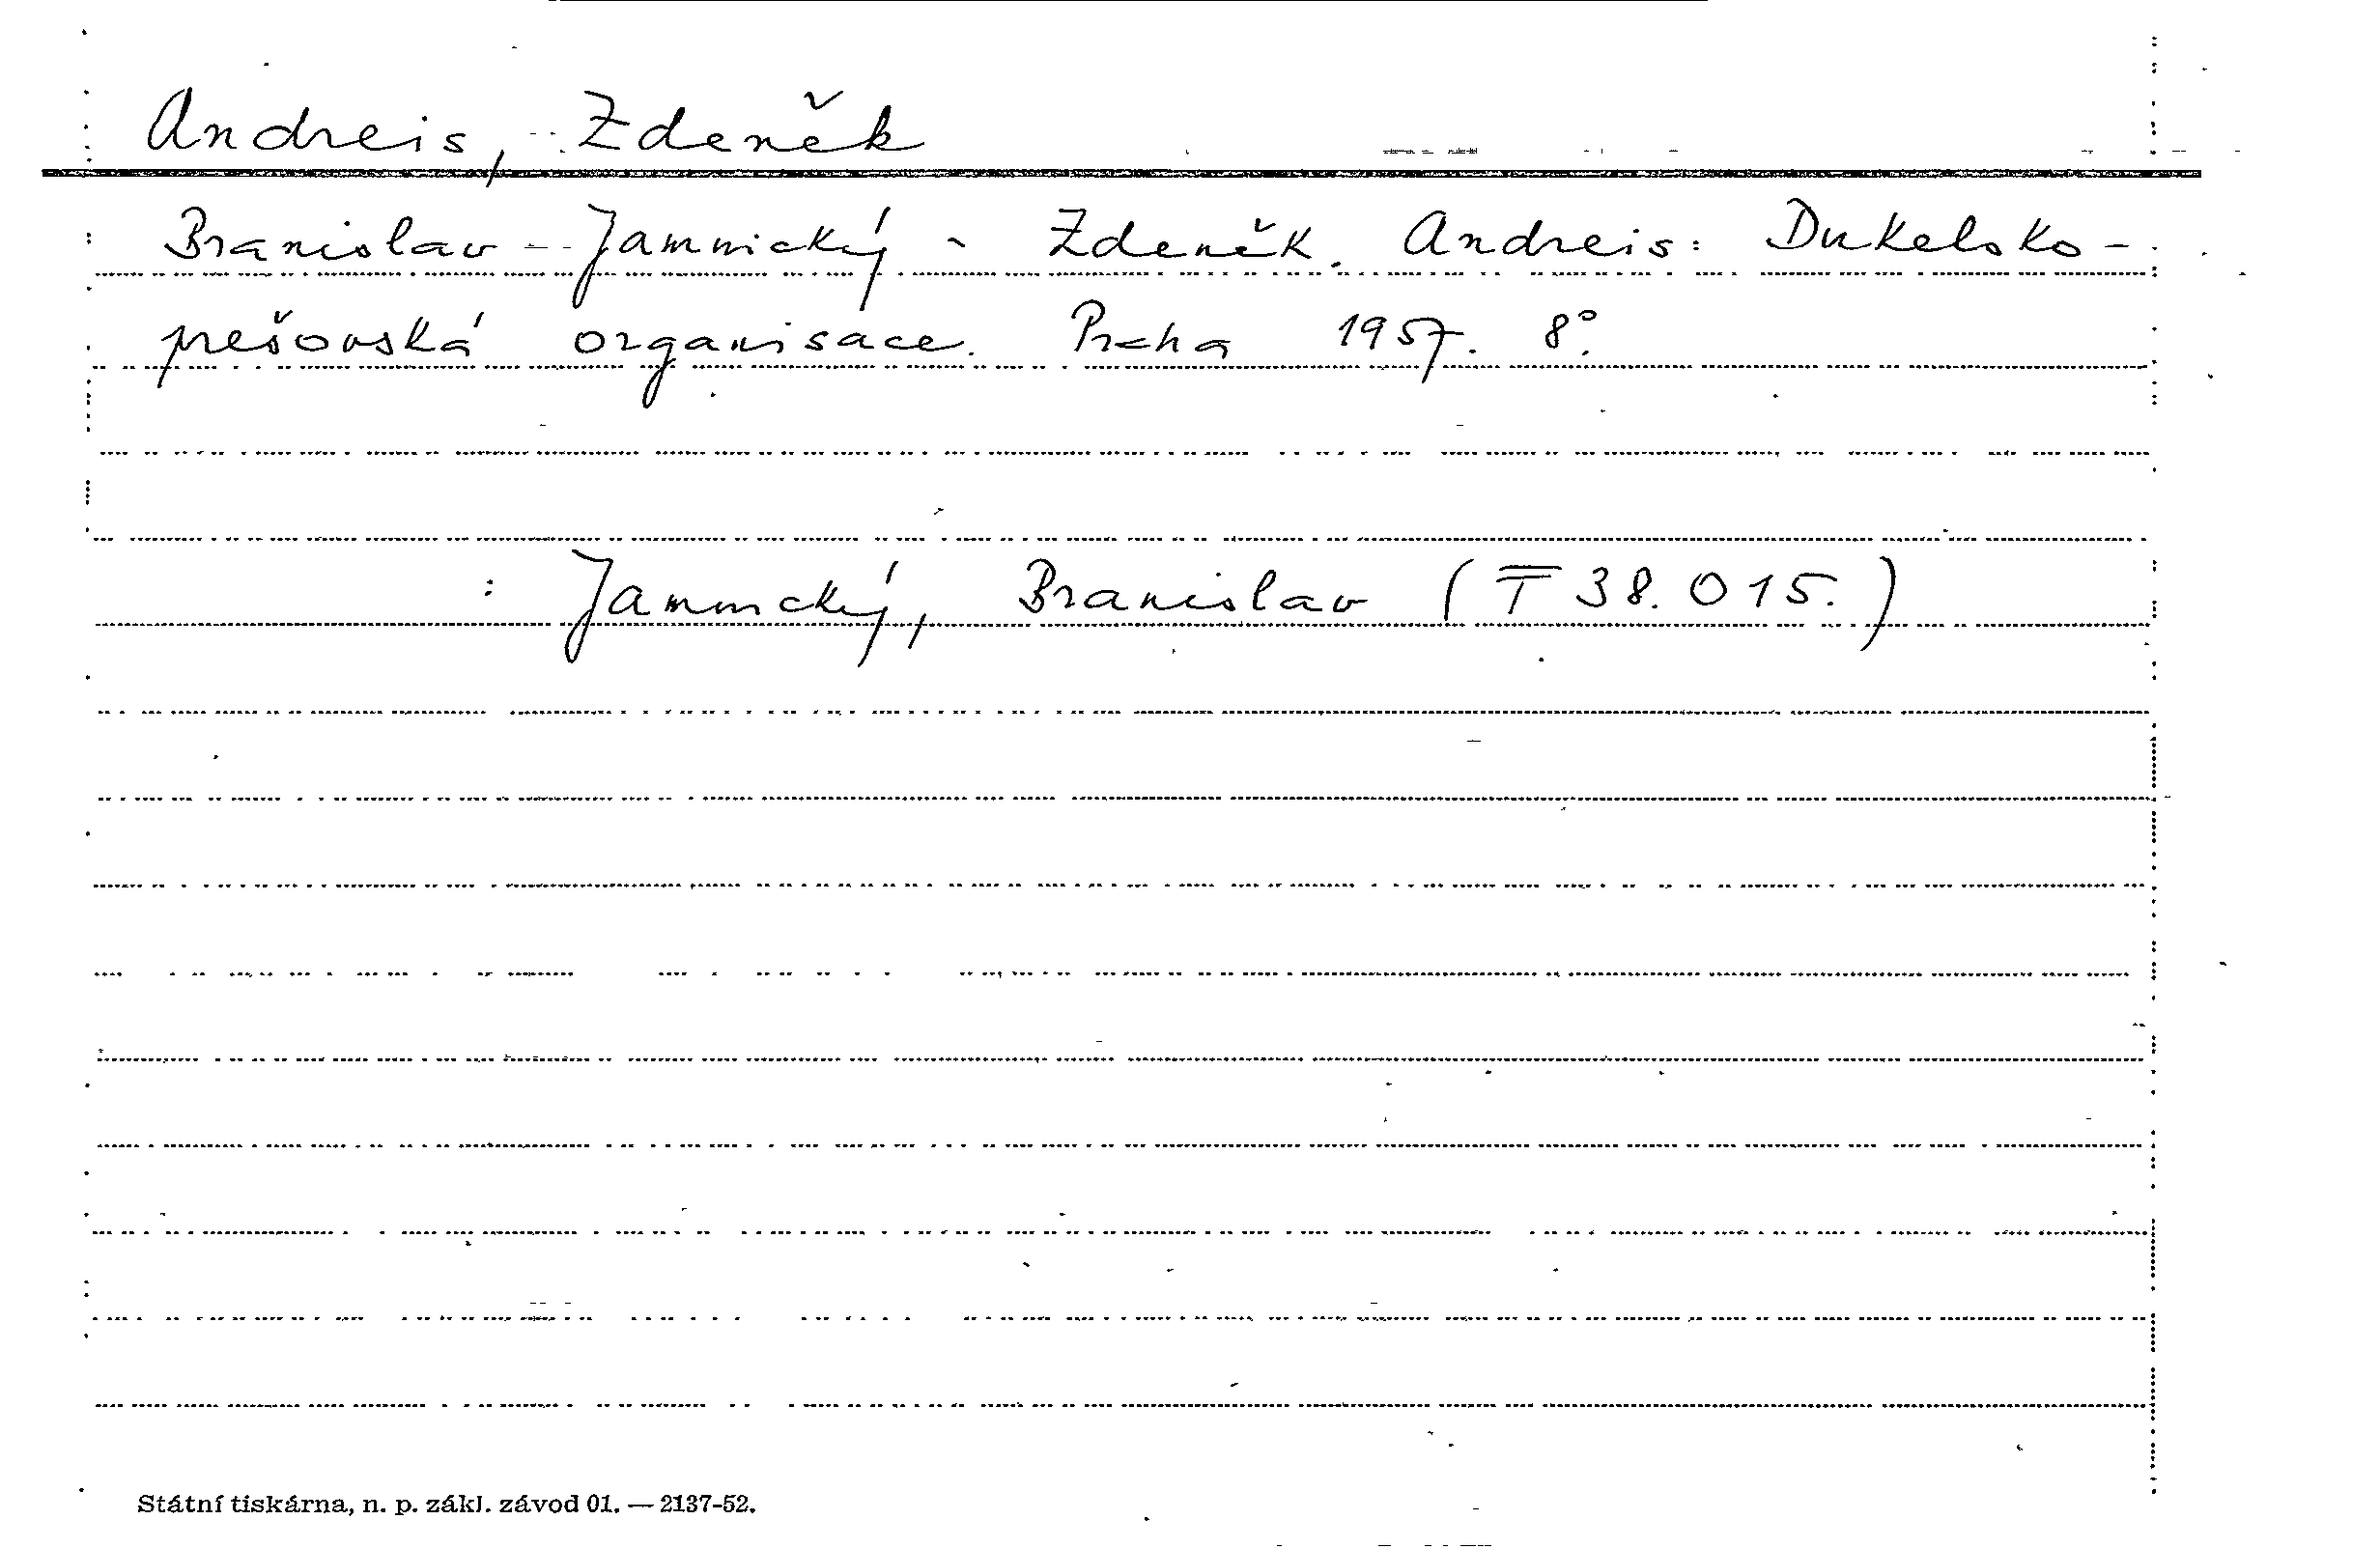 Andreis, Zdeněk
Branislav Jamnický - Zdeněk Andreis: Dukelsko-
prešovská organisace. Praha 1957. 8°.
: Jamnický, Branislav (T 38.015.)
Státní tiskárna, n. p. zákl. závod 01. — 2137-52.